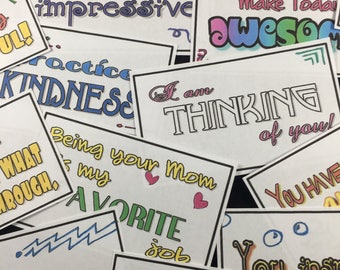 impressive
Make Today
awesome
UL!
Practice
KINDNESS
I am
THINKING
of you!
WHAT
THROUGH,
Being your Mom
is my
FAVORITE
job
YOU HAVE
You